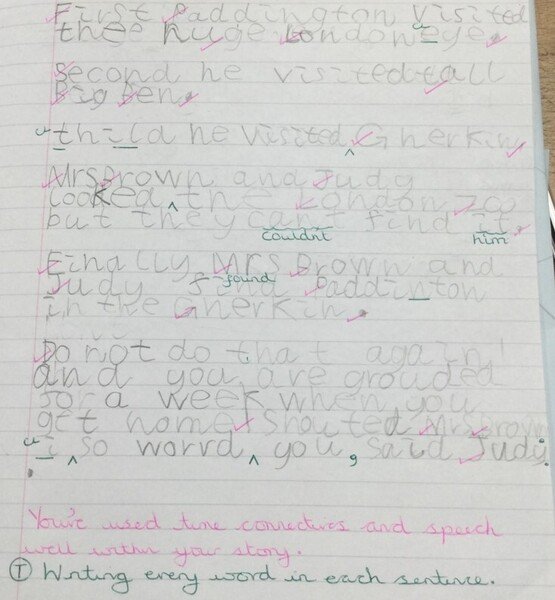 First Paddington visited
thee huge London eye.
Second he visited tall
Big Ben.
u thild he visited ^ Gherkin
Mrs Brown and Judy
looked ^ the London zoo
but they can't find it.
couldnt him
Finally Mrs Brown and
found
Judy find Paddinton
in the Gherkin.
Do not do that again!
and you are grouded
for a week when you
get home! Shouted Mrs Brown
u i ^ so worrd ^ you, said Judy
.
You've used time connectives and speech
well within your story.
T Writing every word in each sentence.